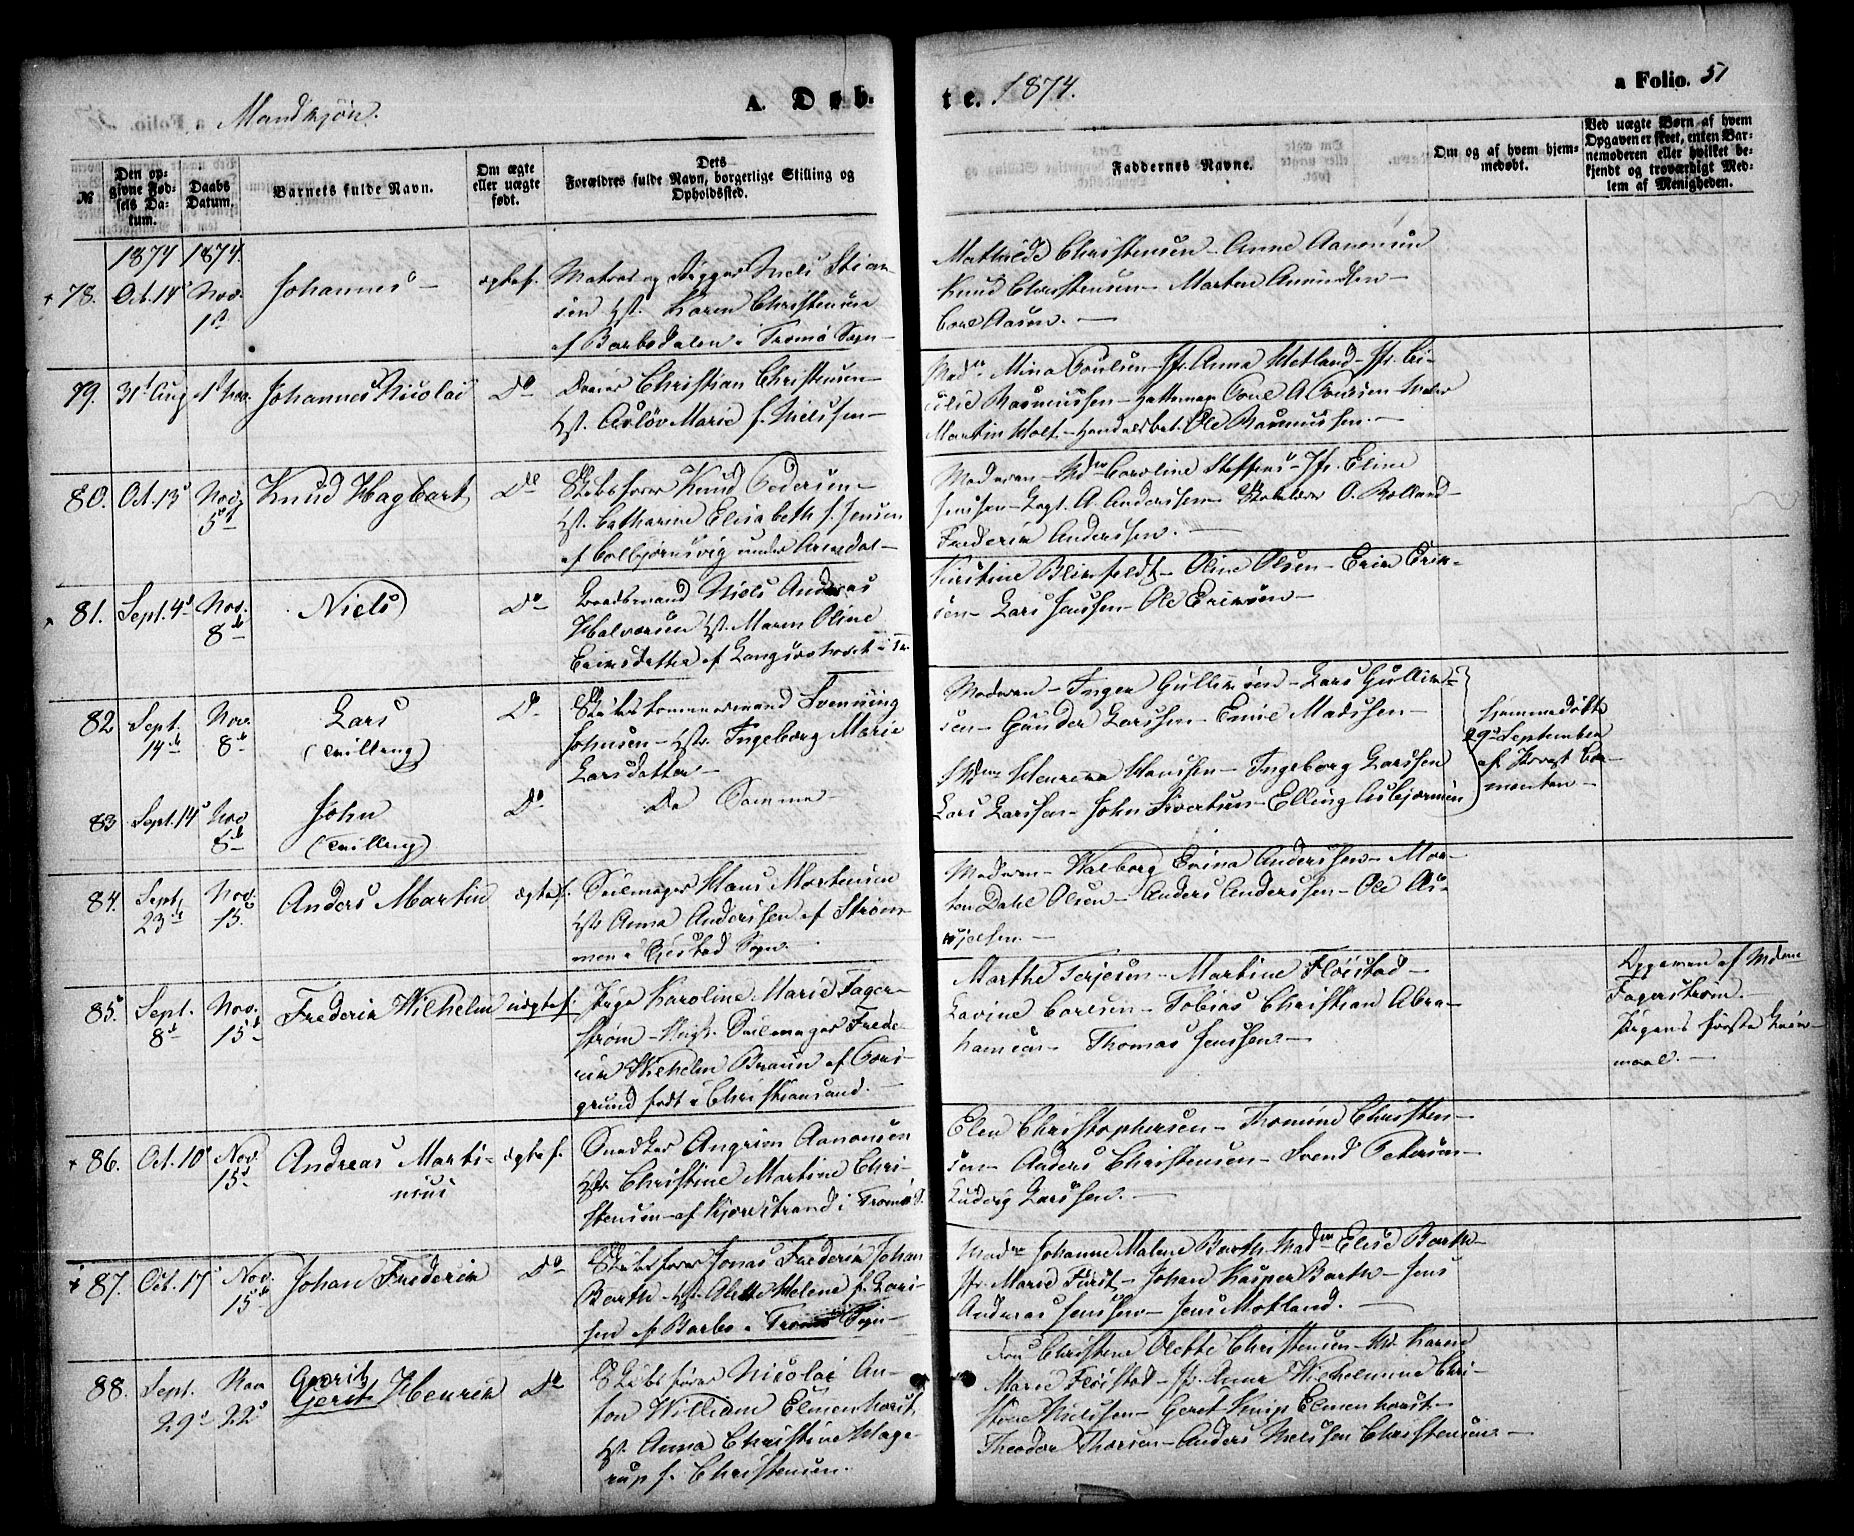 Mandkjøn.
A. Døb-
te. 1874.
a Folio. 51
№
Den op-
givne Fød-
sels Da-
tum.
Daabs
Datum.
Barnets fulde Navn.
Om ægte
eller uægte
født.
Dets
Forældres fulde Navn, borgerlige Stilling og
Opholdssted.
Faddernes Navne.
Om og af hvem hjem-
medøbt.
Ved uægte Børn af hvem
Opgaven er skeet, enten Bar-
nemoderen eller hvilket be-
kjendt og troværdigt Med-
lem af Menigheden.
1874 1874.
78. Oct. 14d Nov. 1st Johannes ægtef.
Matros og Rigger Niels Stian-
sen Hst. Karen Christensen
af Barbodalen i Tromø Sogn
Mathilde Christensen - Anne Aanensen
Knud Christensen - Marten Amundsen
Carl Aasen.
79. 31d Aug 1st Nov. Johannes Nicolai Do
Christian Christensen
Hst. Aslöv Marie f. Nielssen
Madme Mina Poulsen - Jfr. Anna Motland - Jfr. Ce-
cilie Rasmussen - Hattemager A. Poulsen - Maler
Martin Holt - Handelsbet. Ole Rasmussen.
80. Oct. 13d Nov. 5d Knud Hagbart Do
Skibsfører Knud Pedersen
Hst. Catharine Elisabeth f. Jensen
af Colbjørnsvig under Arendal
Moderen - Mdme Caroline Steffens - Jfr. Eline
Jenssen - Capt. A. Anderssen - O. Rolland
Frederik Anderssen.
81. Sept. 4d Nov. 8de Niels Do
Baadsmand Niels Andreas
Halvorsen Hst. Maren Oline
Eriksdatter af Langsæehovet i Tr.
Kirstine Blixfeldt - Oline Olsen - Erik Erik-
sen - Lars Jenssen - Ole Eriksen
82 Sept. 14de Nov. 8de Lars (Tvilling) Do
Skibstømmermand Svenning
Johnsen - Hst. Ingeborg Marie
Larsdatter
Moderen - Inger Gulliksen - Lars Gullik-
sen - Gunder Larssen - Emil Madssen
Hjemmedøbte
29d September
af Præst Cor-
83 Sept. 14d Nov 8de John (Tvilling) Do
De Samme
Mdme Hanssen - Ingeborg Larssen
Lars Larssen - John Sivertsen - Elling Asbjørnsen
84. Sept 23de Nov. 15. Anders Martin ægtef.
Seilmager Hans Mortensen
Hst. Anna Anderssen af Strøm-
men i Øiestad Sogn.
Moderen - Valborg Evina Anderssen - Mor-
ten Dahl Olsen - Anders Anderssen - Ole
85. Sept. 8d Nov. 15d Frederik Wilhelm uægtef.
Pige Karoline Marie Fager-
strøm - Seilmager Frede-
rik Wilhelm Braun af Pors-
grund født i Christiansand.
Marthe Terjesen - Martine Fløistad
Lavine Carlsen - Tobias Christian Abra-
hamsen - Thomas Jenssen
Opgaven af Mdme
Fagerstrøm.
Pigens første Leier-
maal.
86. Oct. 10d Nov. 15d Andreas Marti-
nius ægtef.
Snedker Angrim Aanonsen
Hst. Christine Martine Chri-
stensen af Kjørestrand i Tromø S.
Elen Christophersen - Thomine Christen-
sen - Anders Christensen - Svend Petersen
Ludvig Larssen.
87. Oct. 17d Nov. 15d Johan Frederik Do
Skibsfører Jonas Frederik Johan
Barth - Hst. Alette Helene f. Lars-
sen af Barbo i Tromø Sogn
Madme Johanne Malene Barth - Madme Elise Barth
Jfr. Marie Fürst - Johan Kasper Barth - Jens
Andreas Jenssen - Jens Motland.
88. Sept. 29d Nov 22d Gerrit
Gerit Henrik Do
Skibsfører Nicolai An-
ton William Elmenhorst
Hst. Anna Christine Hage-
rup f. Christensen.
Christine Olette Christensen - Md. Karen
Marie Fløistad - Jfr. Anne Wilhelmine Chri-
stine Nielsen - Geret Knip Elmenhorst
Theodor Thorsen - Anders Nielssen Christensen